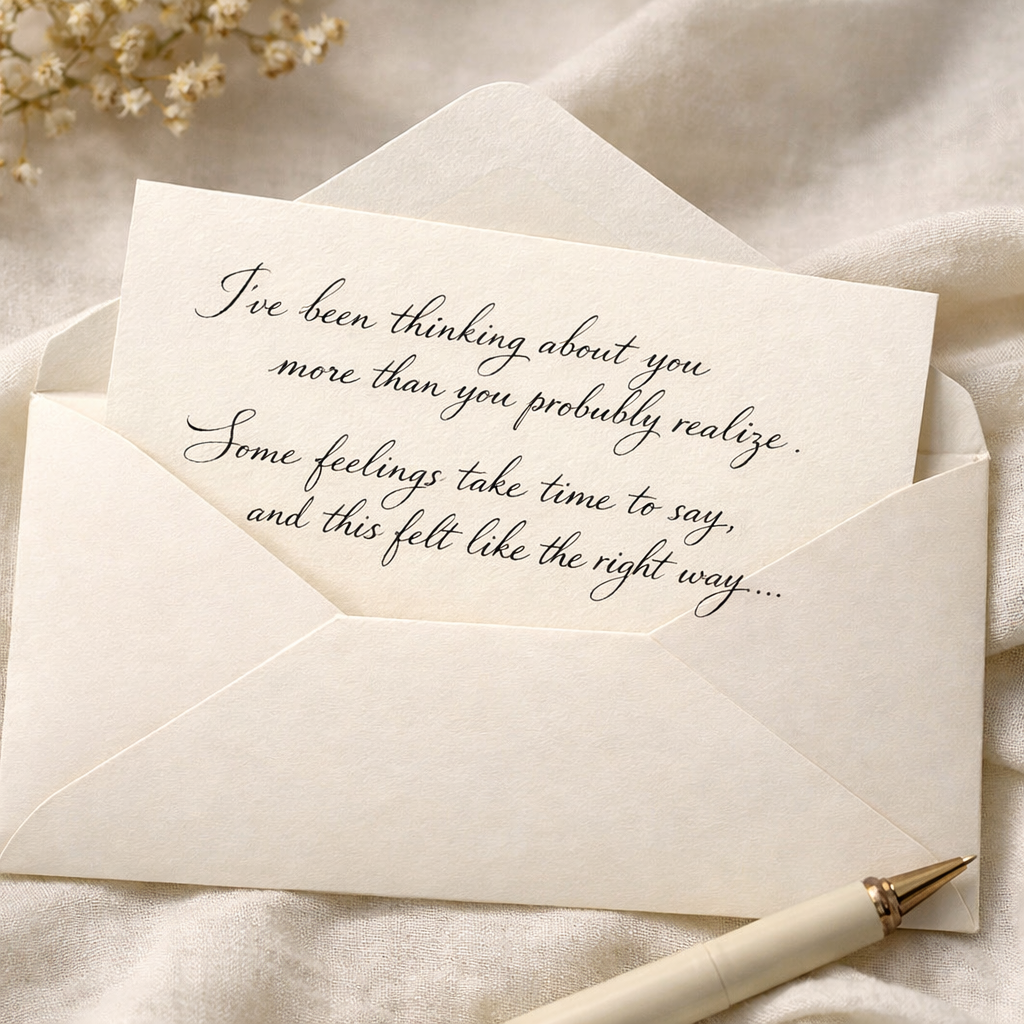 I've been thinking about you
more than you probubly realize.
Some feelings take time to say,
and this felt like the right way...